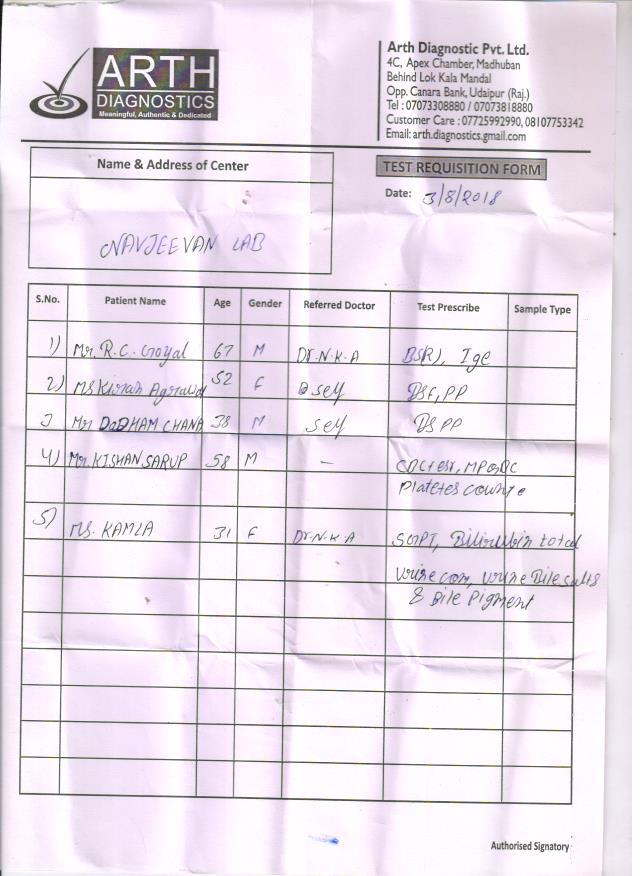 ARTH
DIAGNOSTICS
Meaningful, Authentic & Dedicated
Arth Diagnostic Pvt. Ltd.
4C, Apex Chamber, Madhuban
Behind Lok Kala Mandal
Opp. Canara Bank, Udaipur (Raj.)
Tel : 07073308880 / 07073818880
Customer Care : 07725992990, 08107753342
Email: arth.diagnostics.gmail.com
Name & Address of Center
NAVJEEVAN LAB
TEST REQUISITION FORM
Date: 3/8/2018
S.No. Patient Name Age Gender Referred Doctor Test Prescribe Sample Type
1) Mr. R.C. Goyal 67 M Dr.N.K.A BS(R), Ige
2) Ms Kiran Agrawal 52 F self BSF, PP
3 Mr 38 M self BSPP
4) Mr. KISHAN SARUP 58 M - CBC+esr,
Platetes counte
5) MS. KAMLA 31 F Dr.N.K.A SGPT, Bilirubin total
Urine com, urine Bile salts
& Bile Pigment
Authorised Signatory